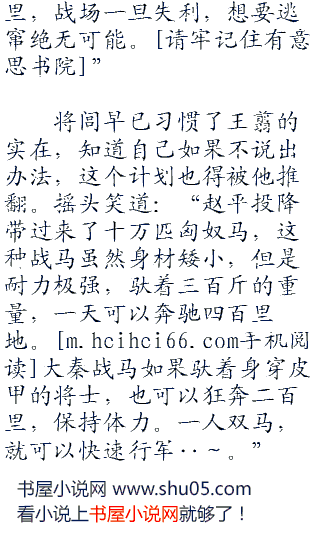 里，战场一旦失利，想要逃
窜绝无可能。[请牢记住有意
思书院]”
将闾早已习惯了王翦的
实在，知道自己如果不说出
办法，这个计划也得被他推
翻。摇头笑道：“赵平投降
带过来了十万匹匈奴马，这
种战马虽然身材矮小，但是
耐力极强，驮着三百斤的重
量，一天可以奔驰四百里
地。[m.hcihci66.com手机阅
读]大秦战马如果驮着身穿皮
甲的将士，也可以狂奔二百
里，保持体力。一人双马，
就可以快速行军‥～。”
书屋小说网 www.shu05.com
看小说上书屋小说网就够了！